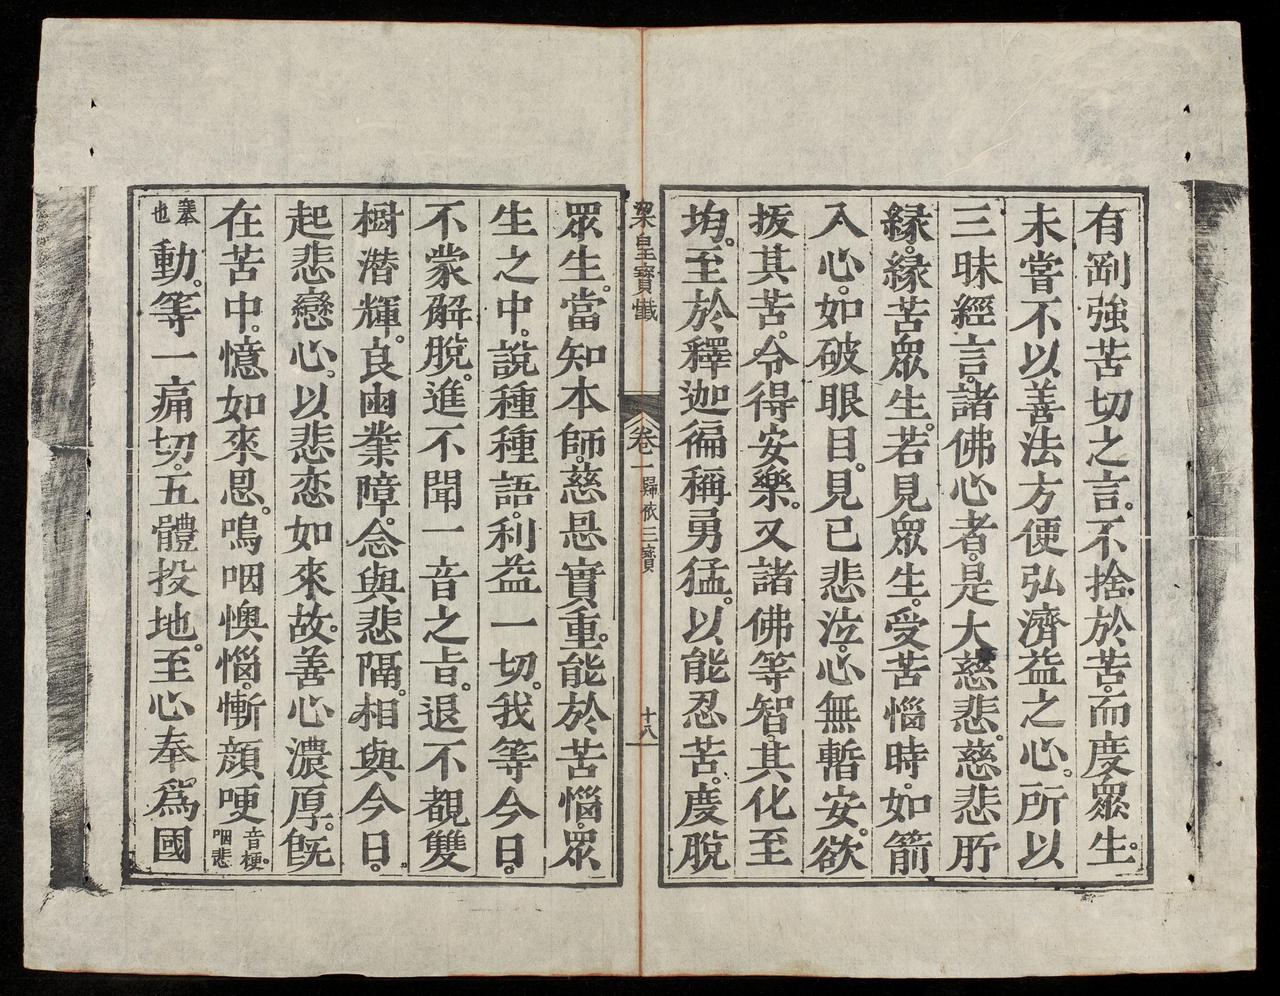 有剛強苦切之言。不捨於苦。而度眾生。
未嘗不以善法方便弘濟益之心。所以
三昧經言。諸佛心者。是大慈悲。慈悲所
緣。緣苦眾生。若見眾生。受苦惱時。如箭
入心。如破眼目。見已悲泣。心無暫安。欲
拔其苦。令得安樂。又諸佛等智。其化至
均。至於釋迦徧稱勇猛。以能忍苦。度脫
梁皇寶懺 卷一歸依三寶 十八
眾生。當知本師。慈恩實重。能於苦惱。眾
生之中。說種種語。利益一切。我等今日。
不蒙解脫。進不聞一音之旨。退不覩雙
樹潛輝。良由業障。念與悲隔。相與今日。
起悲戀心。以悲恋如來故。善心濃厚。既
在苦中。憶如來恩。嗚咽懊惱。慚顏哽音梗。咽悲
塞也動。等一痛切。五體投地。至心奉。為國